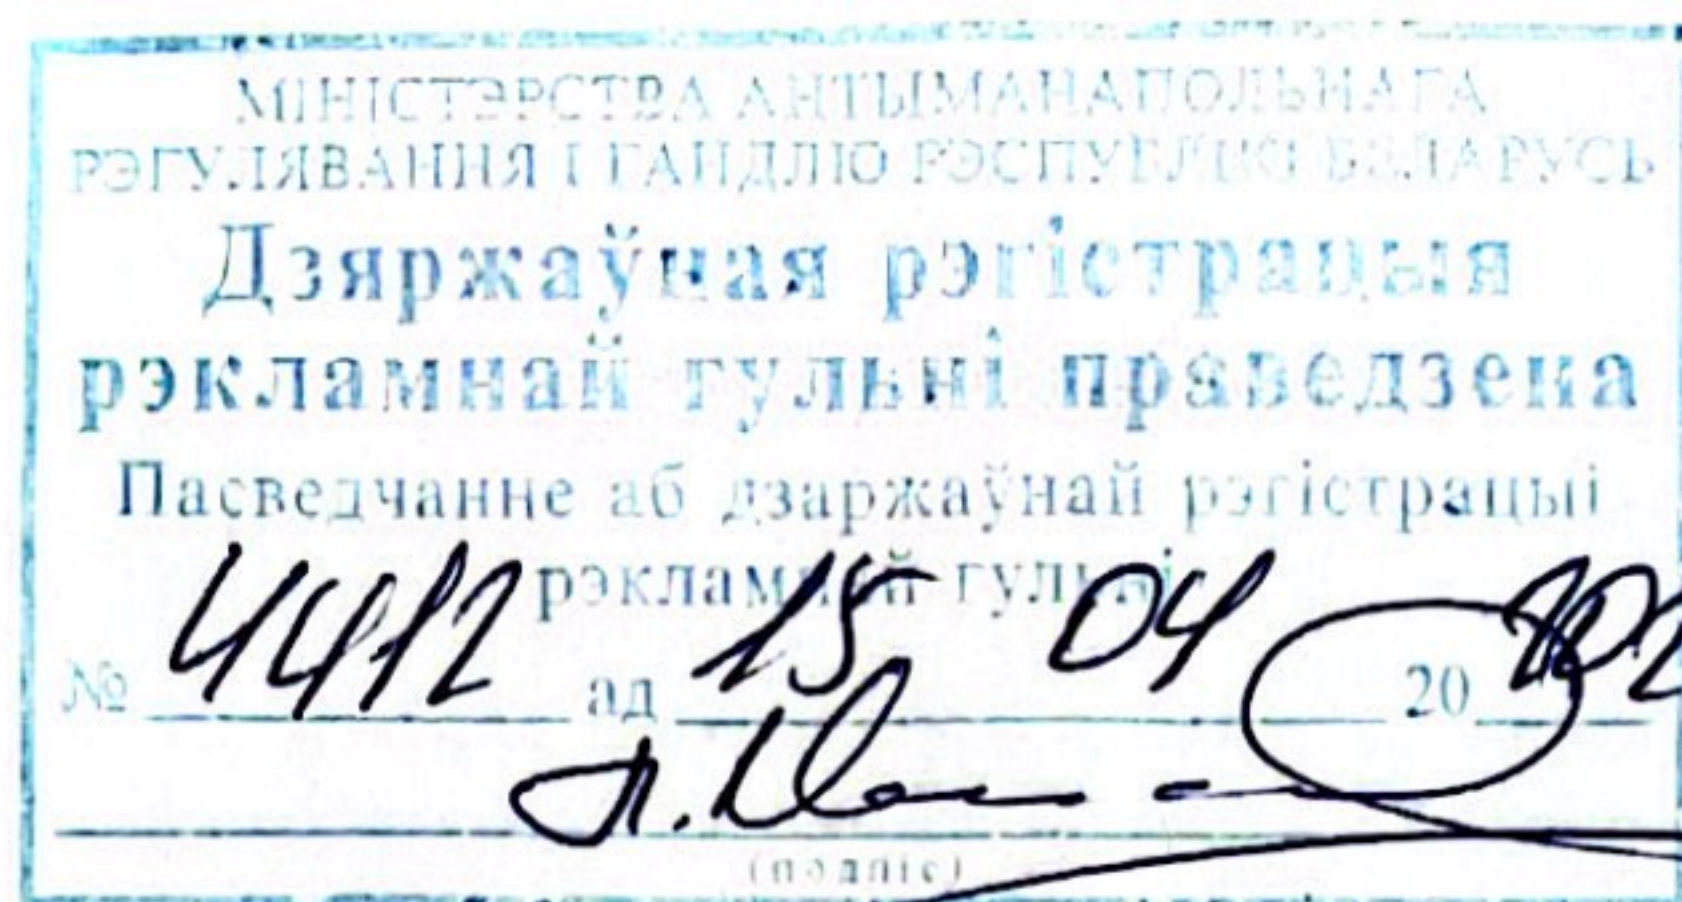 МІНІСТЭРСТВА АНТЫМАНАПОЛЬНАГА
РЭГУЛЯВАННЯ І ГАНДЛЮ РЭСПУБЛІКІ БЕЛАРУСЬ
Дзяржаўная рэгістрацыя
рэкламнай гульні праведзена
Пасведчанне аб дзаржаўнай рэгістрацыі
рэкламнай гульні
№ 4412 ад 15 04 20
(подпіс)